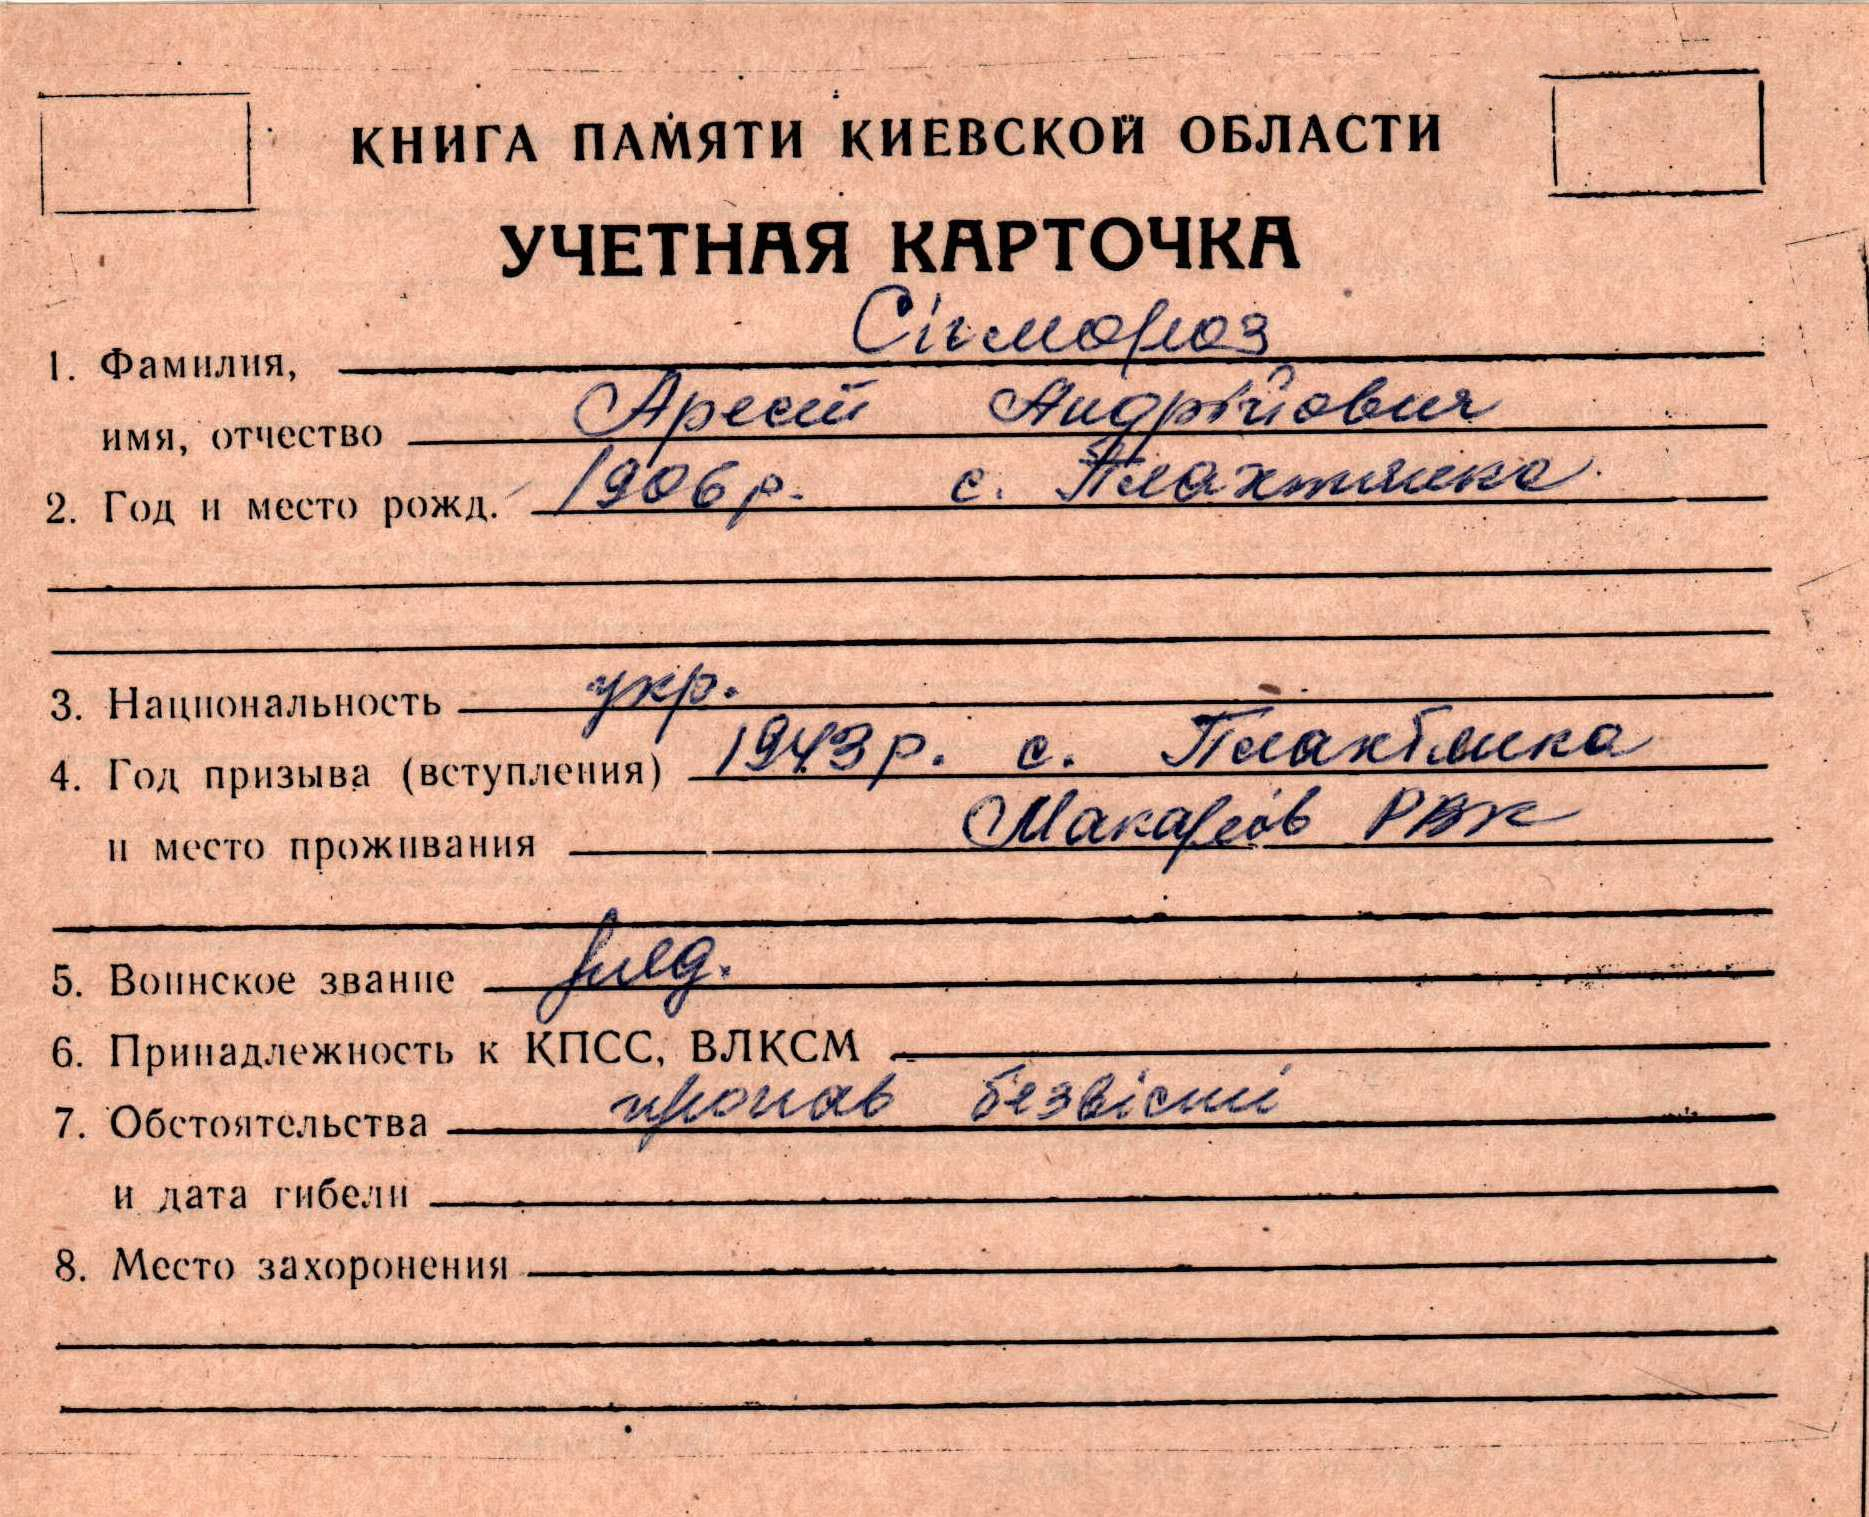 КНИГА ПАМЯТИ КИЕВСКОЙ ОБЛАСТИ
УЧЕТНАЯ КАРТОЧКА
1. Фамилия, Сігмороз
имя, отчество Арест Андрійович
2. Год и место рожд. 1906 р. с. Плахтянка
3. Национальность укр.
4. Год призыва (вступления) 1943 р. с. Плахтянка
и место проживания Макарів РВК
5. Воинское звание
6. Принадлежность к КПСС, ВЛКСМ
7. Обстоятельства пропав безвісти
и дата гибели
8. Место захоронения